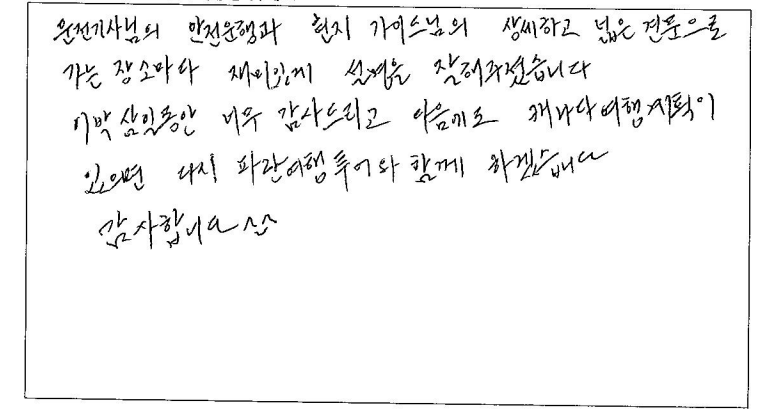 운전기사님의 안전운행과 현지 가이드님의 상세하고 넓은 견문으로
가는 장소마다 재미있게 설명을 잘해주셨습니다
이박 삼일동안 너무 감사드리고 다음에도 캐나다여행계획이
있으면 다시 파란여행 투어와 함께 하겠습니다
감사합니다 ^^